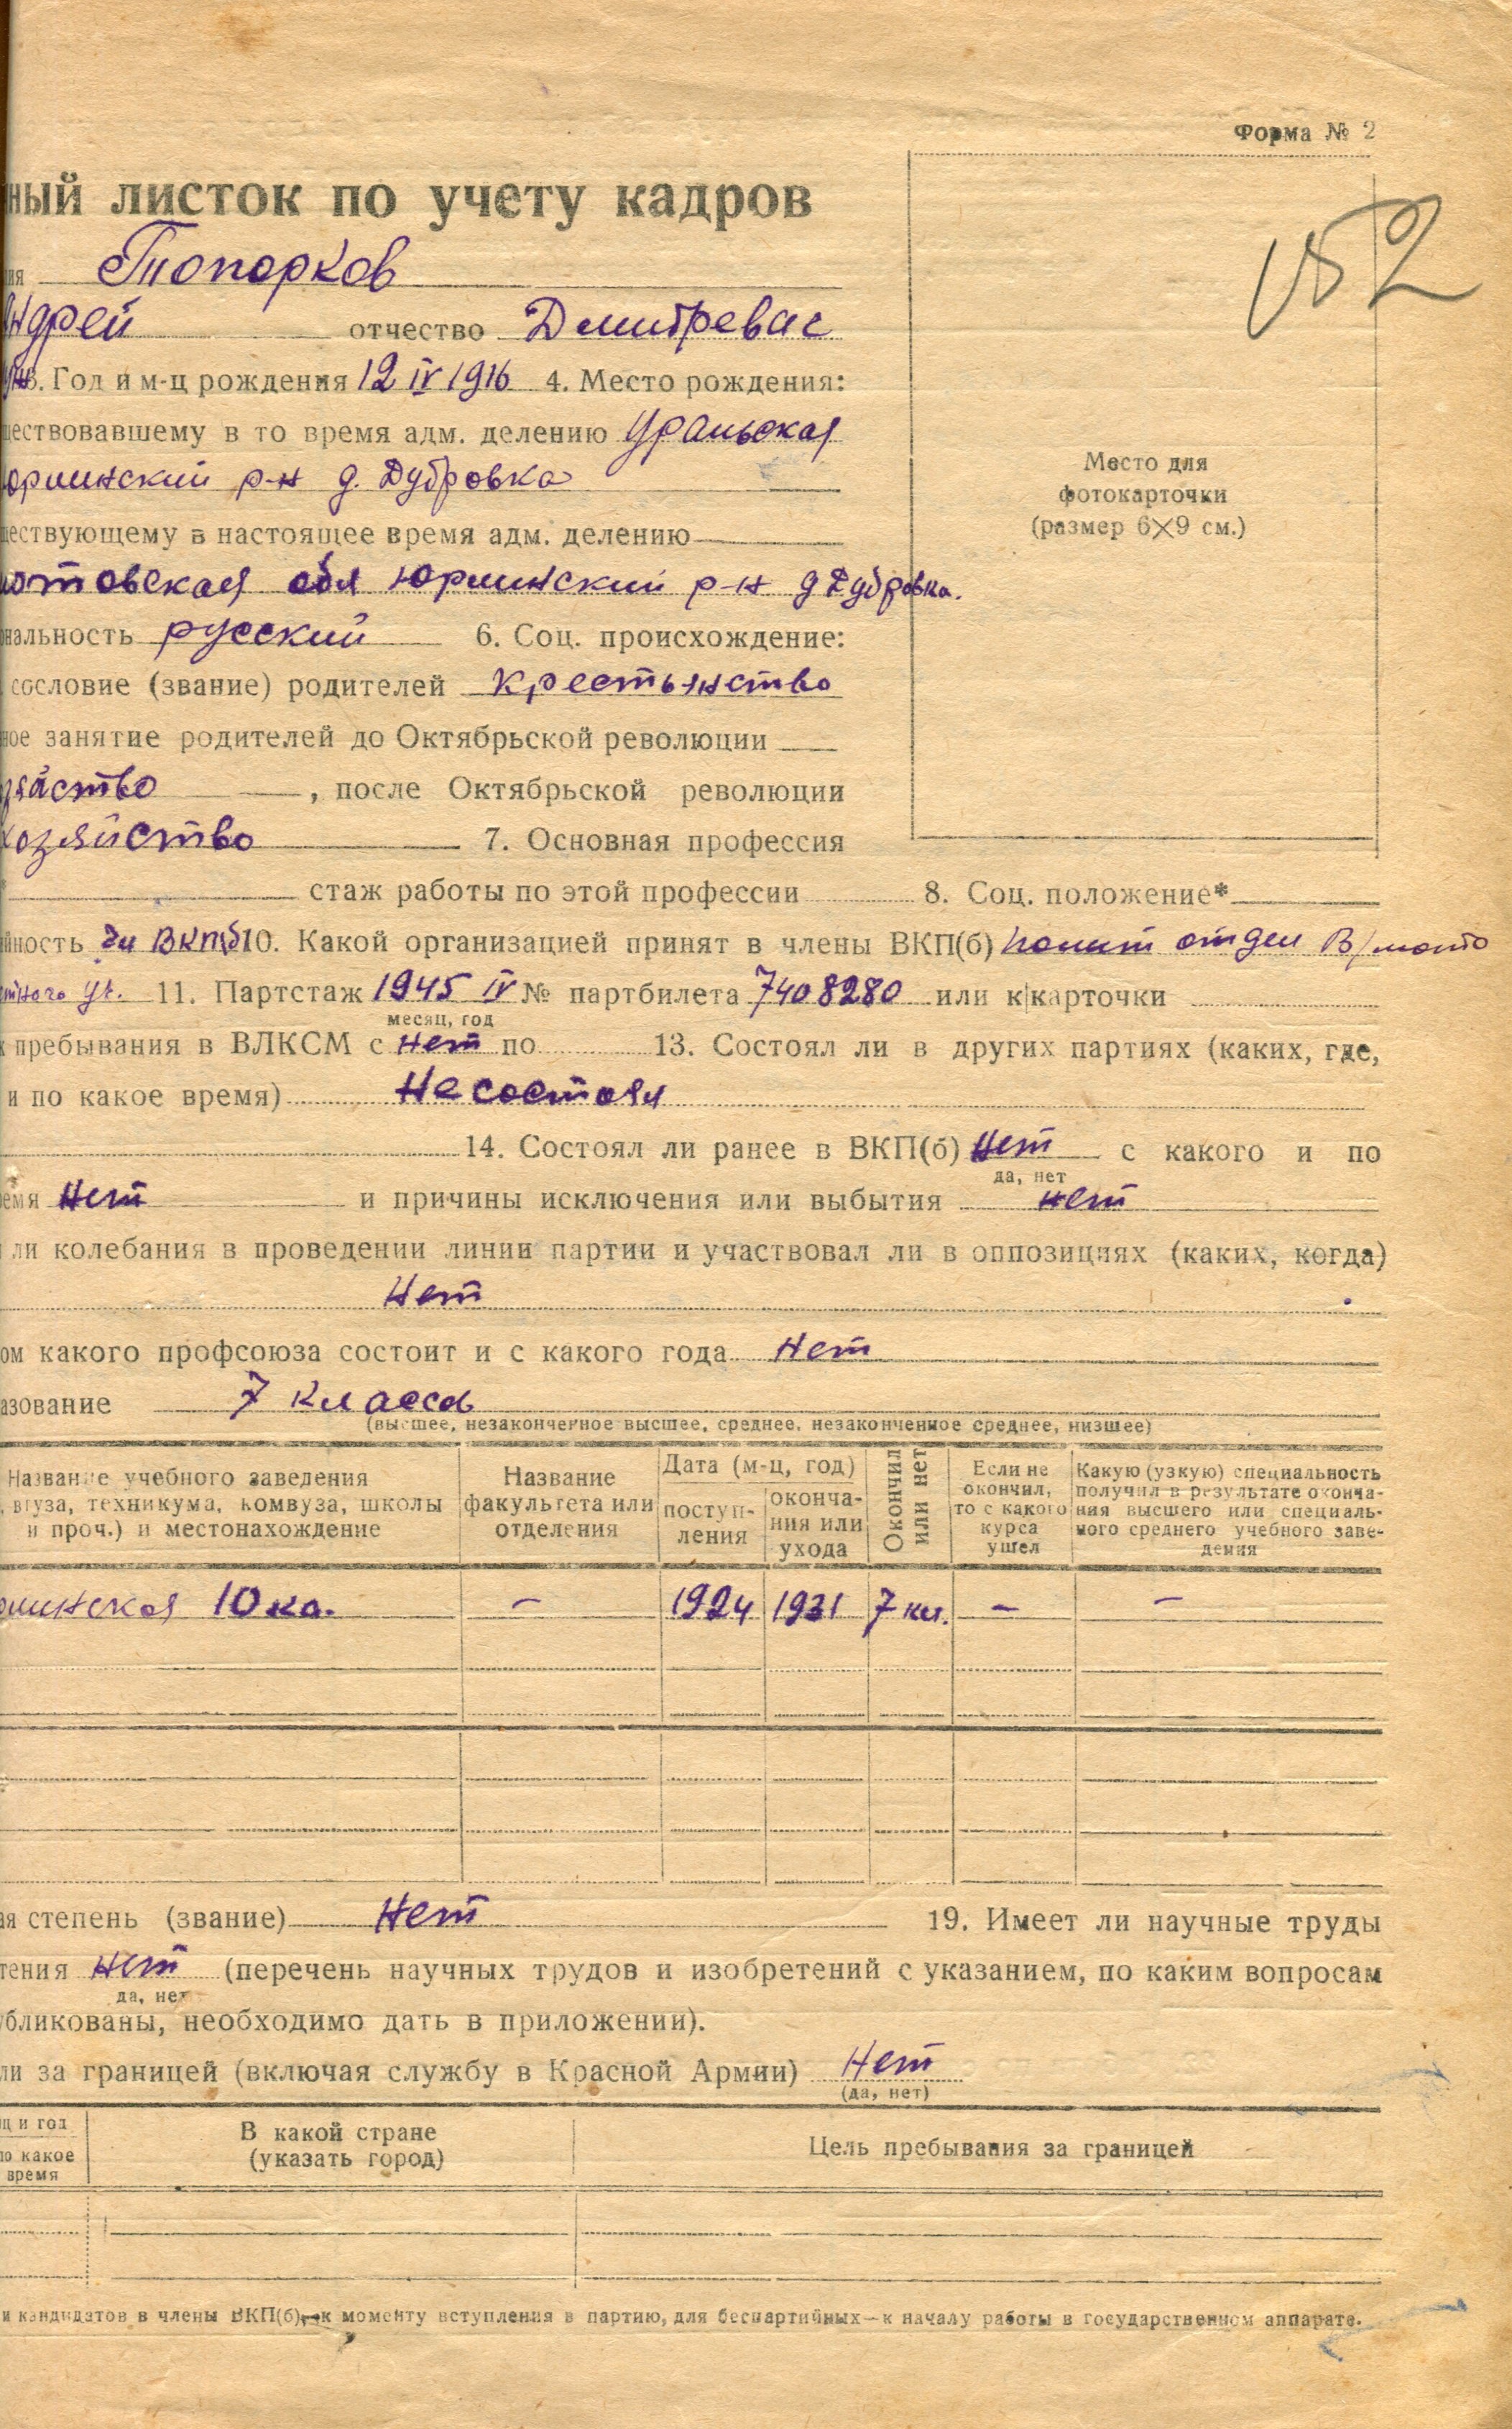 Форма № 2
ный листок по учету кадров
152
ия Топорков
ндрей отчество Дмитревис
3. Год и м-ц рождения 12 IV 1916 4. Место рождения:
ществовавшему в то время адм. делению Уральская
юрлинский р-н д. Дубровка
Место для
фотокарточки
(размер 6×9 см.)
ществующему в настоящее время адм. делению
лотовская обл Юрлинский р-н д Дубровка.
нальность русский 6. Соц. происхождение:
сословие (звание) родителей крестьянство
ное занятие родителей до Октябрьской революции
зяйство , после Октябрьской революции
хозяйство 7. Основная профессия
стаж работы по этой профессии 8. Соц. положение*
йность чл ВКП(б 10. Какой организацией принят в члены ВКП(б) полит отдел В/
11. Партстаж 1945 IV № партбилета 7408280 или к карточки
месяц, год
пребывания в ВЛКСМ с нет по 13. Состоял ли в других партиях (каких, где,
и по какое время) Не состоял
14. Состоял ли ранее в ВКП(б) Нет с какого и по
да, нет
емя Нет и причины исключения или выбытия нет
ли колебания в проведении линии партии и участвовал ли в оппозициях (каких, когда)
Нет
ом какого профсоюза состоит и с какого года Нет
азование 7 класса
(высшее, незаконченное высшее, среднее, незаконченное среднее, низшее)
Название учебного заведения
, втуза, техникума, комвуза, школы
и проч.) и местонахождение
Название
факультета или
отделения
Дата (м-ц, год)
поступ-
ления
оконча-
ния или
ухода
Окончил
или нет
Если не
окончил,
то с какого
курса
ушел
Какую (узкую) специальность
получил в результате оконча-
ния высшего или специаль-
ного среднего учебного заве-
дения
рлинская 10 кл. — 1924 1931 7 кл. — —
ая степень (звание) Нет 19. Имеет ли научные труды
тения нет (перечень научных трудов и изобретений с указанием, по каким вопросам
да, нет
убликованы, необходимо дать в приложении).
ли за границей (включая службу в Красной Армии) Нет
(да, нет)
ц и год
по какое
время
В какой стране
(указать город)
Цель пребывания за границей
и кандидатов в члены ВКП(б)—к моменту вступления в партию, для беспартийных—к началу работы в государственном аппарате.